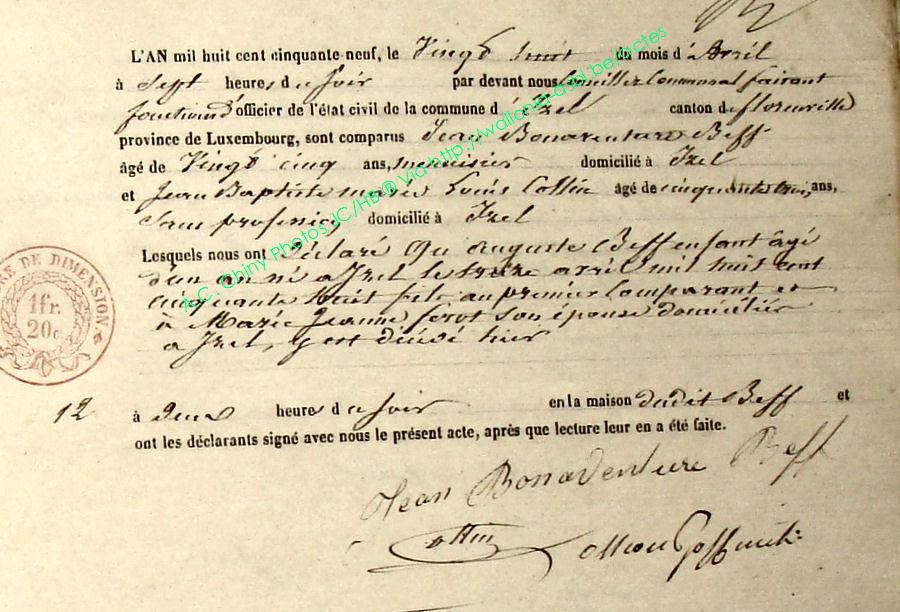 L'AN mil huit cent cinquante-neuf, le Vingt huit du mois d'Avril
à Sept heures du Soir par devant nous Conseiller Communal faisant
fonctions d'officier de l'état civil de la commune d'Izel canton de florenville
province de Luxembourg, sont comparus Jean Bonaventure Beff
âgé de Vingt cinq ans, menuisier domicilié à Izel
et Jean Baptiste marie Louis Collin âgé de cinquante trois ans,
Sans profession domicilié à Izel
Lesquels nous ont Déclaré Qu'auguste Beff enfant âgé
d'un an né a Izel le treize avril mil huit cent
cinquante huit fils au premier Comparant et
à Marie Jeanne ferot Son épouse domiciliés
a Izel, y est décédé hier
12
à Deux heures du Soir en la maison dudit Beff et
ont les déclarants signé avec nous le présent acte, après que lecture leur en a été faite.
Jean Bonaventure Beff
A.C. Chiny Photos JC/HB® Via http://wallonia-asbl.be/actes
RE DE DIMENSION
1fr.
20c.